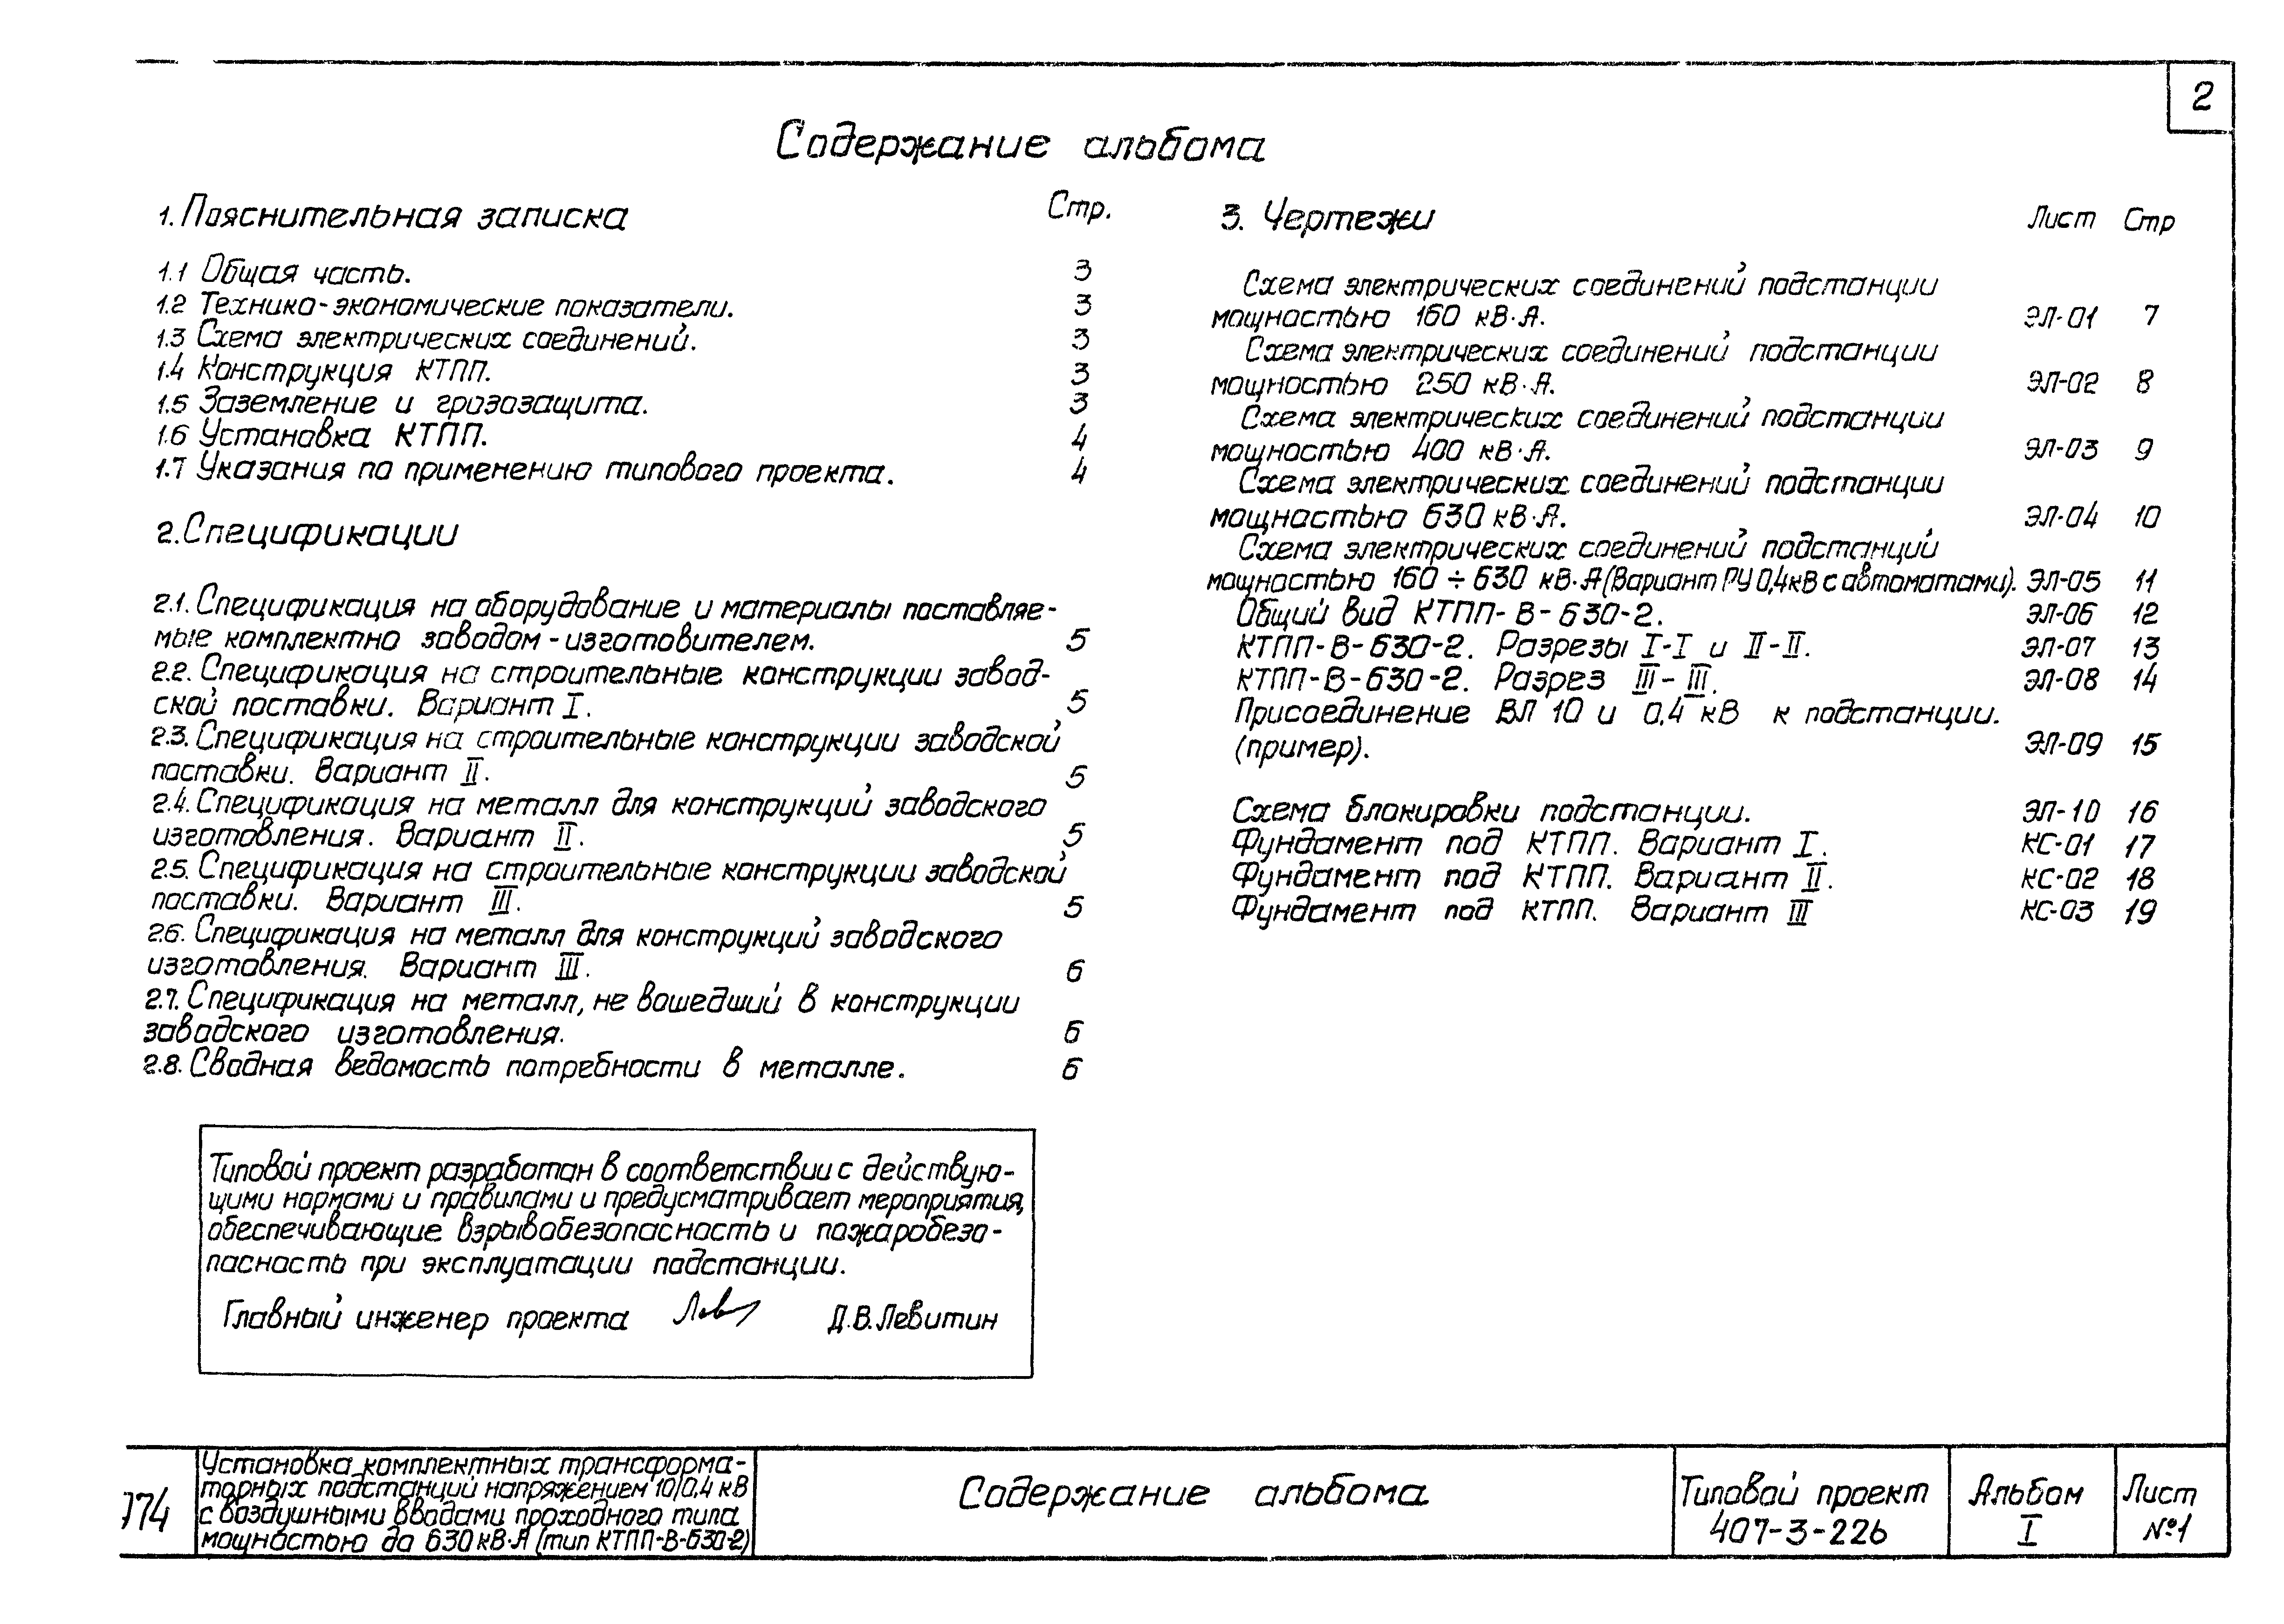 2
Содержание альбома
1. Пояснительная записка Стр.
1.1 Общая часть. 3
1.2 Технико-экономические показатели. 3
1.3 Схема электрических соединений. 3
1.4 Конструкция КТПП. 3
1.5 Заземление и грозозащита. 3
1.6 Установка КТПП. 4
1.7 Указания по применению типового проекта. 4
2. Спецификации
2.1. Спецификация на оборудование и материалы поставляе-
мые комплектно заводом-изготовителем. 5
2.2. Спецификация на строительные конструкции завод-
ской поставки. Вариант I. 5
2.3. Спецификация на строительные конструкции заводской
поставки. Вариант II. 5
2.4. Спецификация на металл для конструкций заводского
изготовления. Вариант II. 5
2.5. Спецификация на строительные конструкции заводской
поставки. Вариант III. 5
2.6. Спецификация на металл для конструкций заводского
изготовления. Вариант III. 6
2.7. Спецификация на металл, не вошедший в конструкции
заводского изготовления. 6
2.8. Сводная ведомость потребности в металле. 6
3. Чертежи Лист Стр
Схема электрических соединений подстанции
мощностью 160 кВ·А. ЭЛ-01 7
Схема электрических соединений подстанции
мощностью 250 кВ·А. ЭЛ-02 8
Схема электрических соединений подстанции
мощностью 400 кВ·А. ЭЛ-03 9
Схема электрических соединений подстанции
мощностью 630 кВ·А. ЭЛ-04 10
Схема электрических соединений подстанций
мощностью 160 ÷ 630 кВ·А (Вариант РУ 0,4кВ с автоматами). ЭЛ-05 11
Общий вид КТПП-В-630-2. ЭЛ-06 12
КТПП-В-630-2. Разрезы I-I и II-II. ЭЛ-07 13
КТПП-В-630-2. Разрез III-III. ЭЛ-08 14
Присоединение ВЛ 10 и 0,4 кВ к подстанции.
(пример). ЭЛ-09 15
Схема блокировки подстанции. ЭЛ-10 16
Фундамент под КТПП. Вариант I. КС-01 17
Фундамент под КТПП. Вариант II. КС-02 18
Фундамент под КТПП. Вариант III КС-03 19
Типовой проект разработан в соответствии с действую-
щими нормами и правилами и предусматривает мероприятия,
обеспечивающие взрывобезопасность и пожаробезо-
пасность при эксплуатации подстанции.
Главный инженер проекта Лев Д.В. Левитин
Установка комплектных трансформа-
торных подстанций напряжением 10/0,4 кВ
с воздушными вводами проходного типа
мощностью до 630 кВ·А (тип КТПП-В-630-2)
Содержание альбома
Типовой проект
407-3-226
Альбом
I
Лист
№1